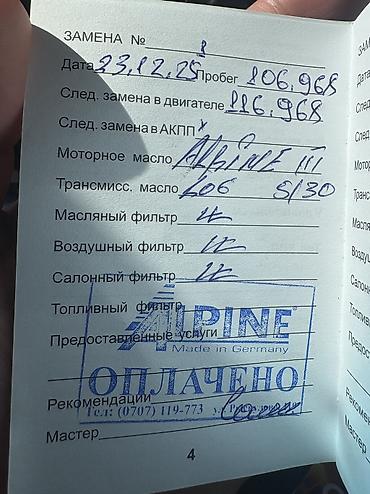 ЗАМЕНА № 1
Дата 23.12.25 Пробег 106.968
След. замена в двигателе 116.968
След. замена в АКПП х
Моторное масло ALPINE III
Трансмисс. масло 5/30
Масляный фильтр
Воздушный фильтр
Салонный фильтр
Топливный фильтр
ALPINE
Предоставленные услуги
Made in Germany
ОПЛАЧЕНО
Рекомендации
Тел: (0707) 119-773
Мастер
4